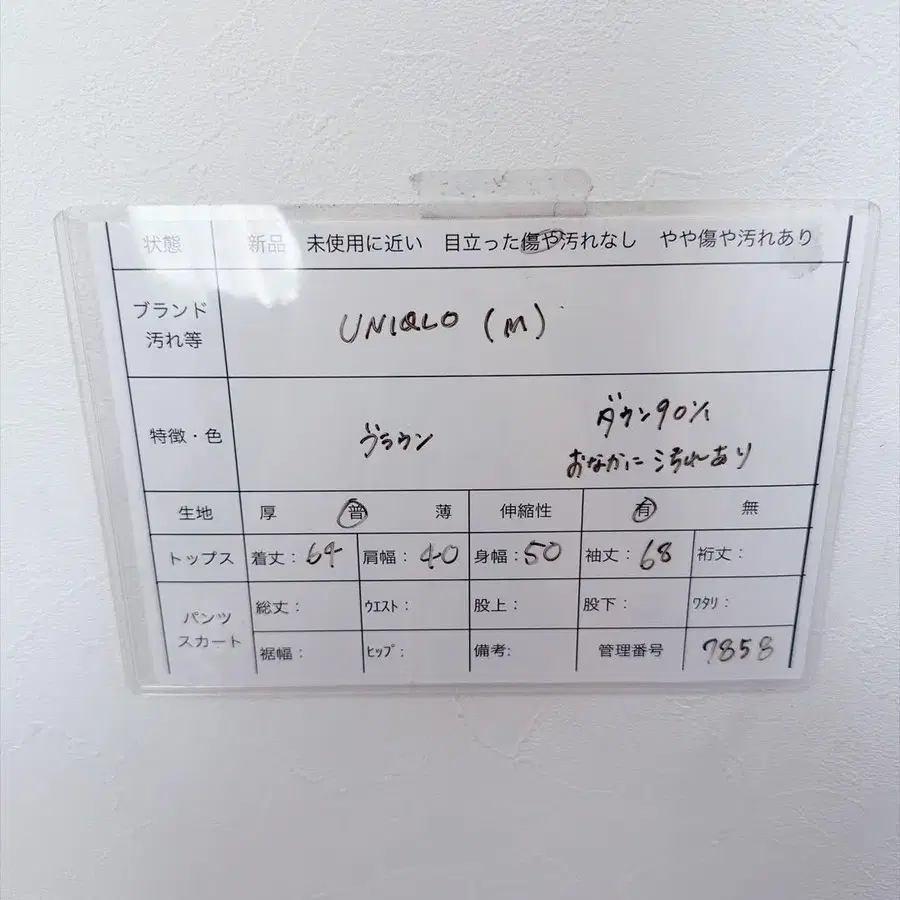 状態 新品 未使用に近い 目立った傷や汚れなし やや傷や汚れあり
ブランド
汚れ等
UNIQLO (M)
特徴・色
ブラウン
ダウン90%
おなかに汚れあり
生地 厚 普 薄 伸縮性 有 無
トップス 着丈: 64 肩幅: 40 身幅: 50 袖丈: 68 裄丈:
パンツ
スカート
総丈: ウエスト: 股上: 股下: ワタリ:
裾幅: ヒップ: 備考: 管理番号 7858